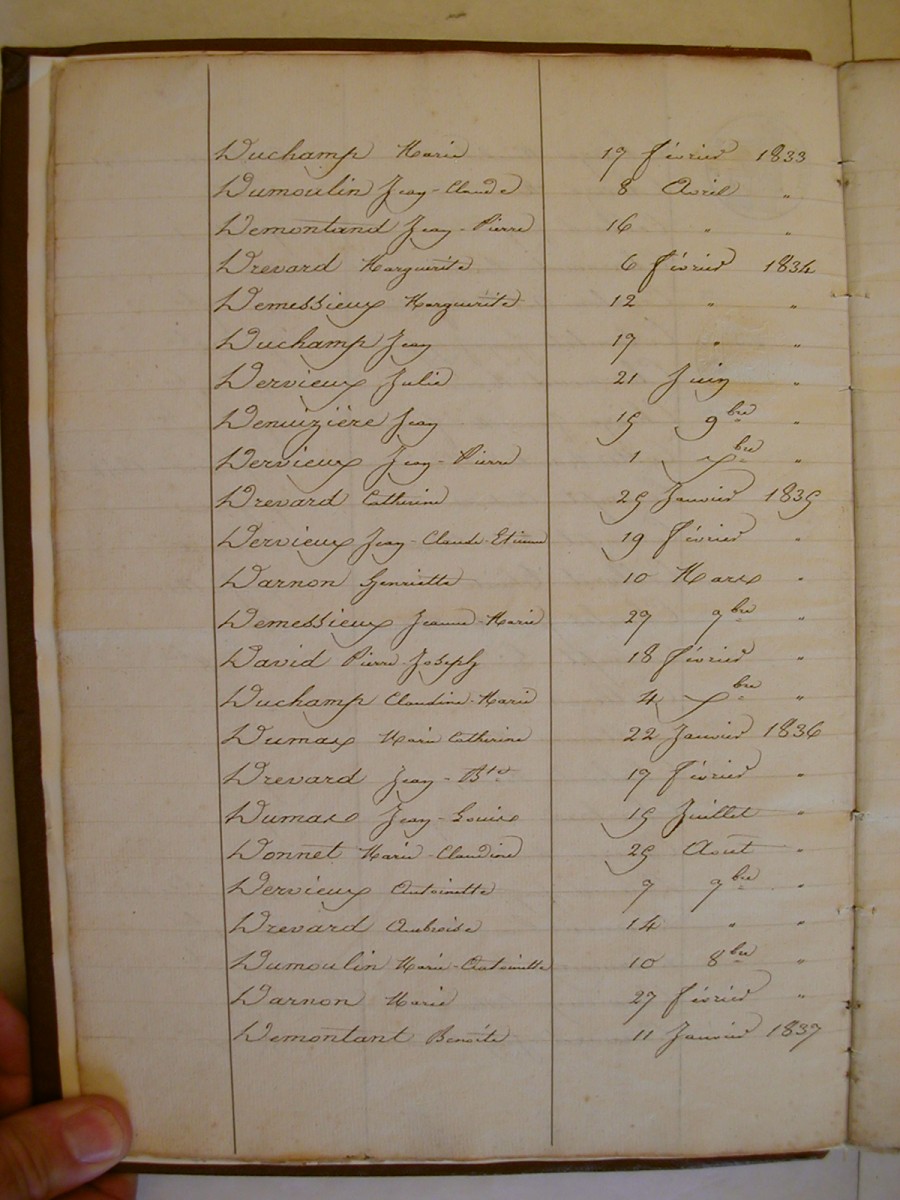 Duchamp Marie 17 février 1833
Dumoulin Jean-Claude 8 Avril "
Demontand Jean-Pierre 16 " "
Drevard Marguerite 6 février 1834
Demessieux Marguerite 12 " "
Duchamp Jean 17 " "
Dervieux Julie 21 Juin "
Denuizière Jean 15 9bre "
Dervieux Jean-Pierre 1 xbre "
Drevard Catherine 25 Janvier 1835
Dervieux Jean-Claude-Etienne 19 février "
Darnon Henriette 10 Mars "
Demessieux Jeanne-Marie 27 9bre "
David Pierre-Joseph 18 février "
Duchamp Claudine-Marie 4 xbre "
Dumas Marie Catherine 22 Janvier 1836
Drevard Jean-Bte 17 février "
Dumas Jean-Louis 15 Juillet "
Donnet Marie-Claudine 25 Aout "
Dervieux Antoinette 7 9bre "
Drevard Ambroise 14 " "
Dumoulin Marie-Antoinette 10 8bre "
Darnon Marie 27 février "
Demontant Benoîte 11 Janvier 1837